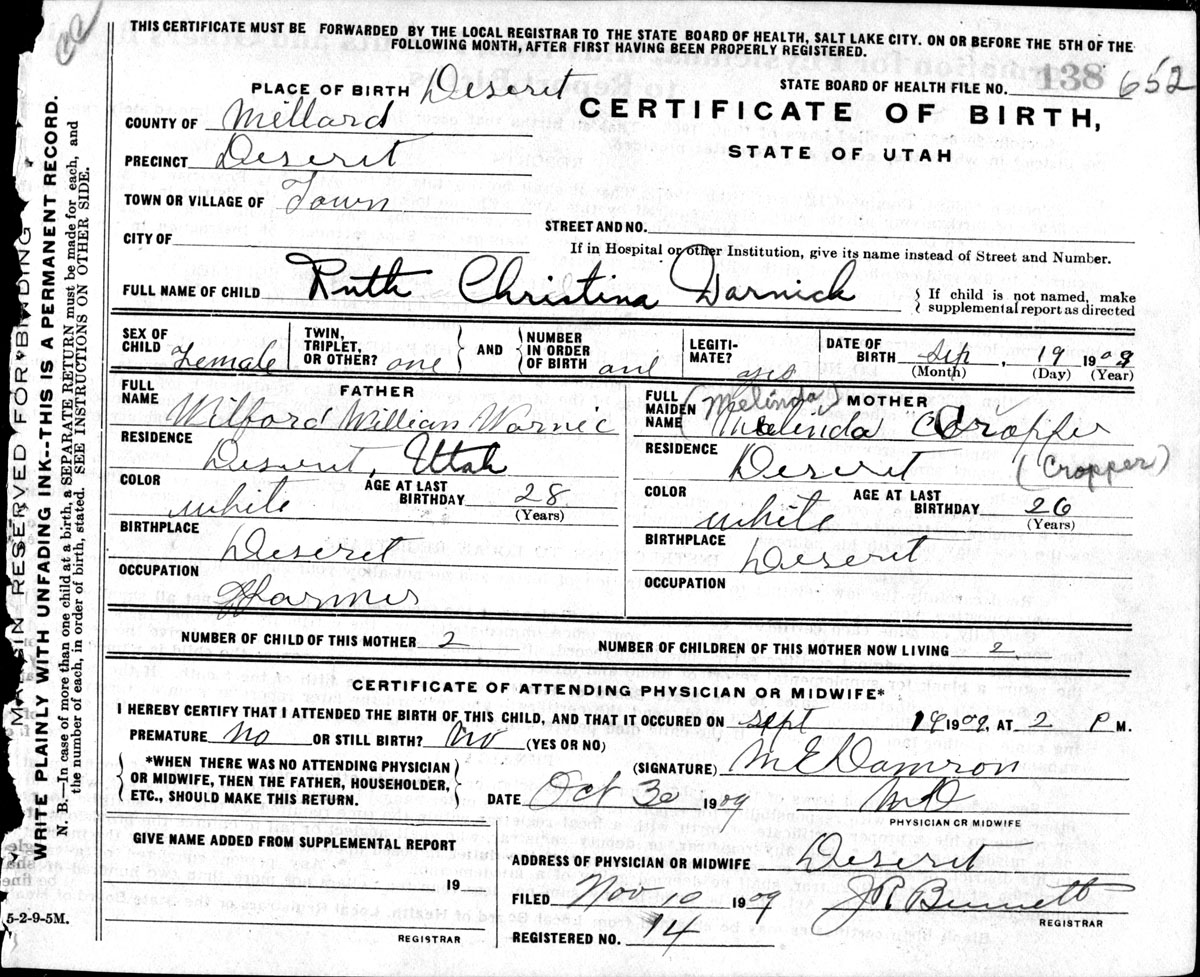 THIS CERTIFICATE MUST BE FORWARDED BY THE LOCAL REGISTRAR TO THE STATE BOARD OF HEALTH, SALT LAKE CITY. ON OR BEFORE THE 5TH OF THE
FOLLOWING MONTH, AFTER FIRST HAVING BEEN PROPERLY REGISTERED.
STATE BOARD OF HEALTH FILE NO. 138 652
PLACE OF BIRTH Deserit
CERTIFICATE OF BIRTH,
STATE OF UTAH
COUNTY OF Millard
PRECINCT Deserit
TOWN OR VILLAGE OF Town
STREET AND NO.
CITY OF
If in Hospital or other Institution, give its name instead of Street and Number.
FULL NAME OF CHILD Ruth Christina Warnick
{ If child is not named, make
supplemental report as directed
SEX OF CHILD Female
TWIN, TRIPLET, OR OTHER? one } AND { NUMBER IN ORDER OF BIRTH one
LEGITIMATE? yes
DATE OF BIRTH Sep, 19 1909
(Month) (Day) (Year)
FATHER
FULL NAME Wilford William Warnic
RESIDENCE Deserit, Utah
COLOR white
AGE AT LAST BIRTHDAY 28
(Years)
BIRTHPLACE Deserit
OCCUPATION Farmer
MOTHER
(Melinda)
FULL MAIDEN NAME Malinda Cropper
(Cropper)
RESIDENCE Deserit
COLOR white
AGE AT LAST BIRTHDAY 26
(Years)
BIRTHPLACE Deserit
OCCUPATION
NUMBER OF CHILD OF THIS MOTHER 2
NUMBER OF CHILDREN OF THIS MOTHER NOW LIVING 2
CERTIFICATE OF ATTENDING PHYSICIAN OR MIDWIFE*
I HEREBY CERTIFY THAT I ATTENDED THE BIRTH OF THIS CHILD, AND THAT IT OCCURED ON Sept 19 1909, AT 2 P M.
PREMATURE No OR STILL BIRTH? No (YES OR NO)
{ *WHEN THERE WAS NO ATTENDING PHYSICIAN
OR MIDWIFE, THEN THE FATHER, HOUSEHOLDER,
ETC., SHOULD MAKE THIS RETURN. }
(SIGNATURE) M E Damron
MD
PHYSICIAN OR MIDWIFE
DATE Oct 30 1909
GIVE NAME ADDED FROM SUPPLEMENTAL REPORT
19
REGISTRAR
ADDRESS OF PHYSICIAN OR MIDWIFE Deserit
FILED Nov 10 1909
J R Bennett
REGISTRAR
REGISTERED NO. 14
5-2-9-5M.
MARGIN RESERVED FOR BINDING
WRITE PLAINLY WITH UNFADING INK--THIS IS A PERMANENT RECORD.
N. B.—In case of more than one child at a birth, a SEPARATE RETURN must be made for each, and
the number of each, in order of birth, stated. SEE INSTRUCTIONS ON OTHER SIDE.